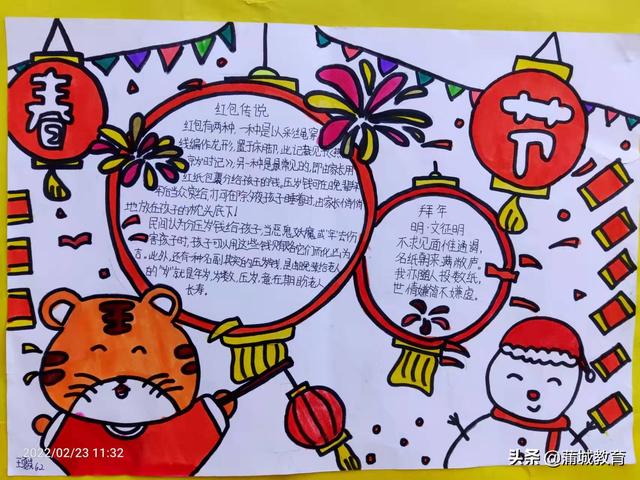 春
节
红包传说
红包有两种,一种是以彩绳穿
线编作龙形,置于床脚,此记载见
另一种是最常见的,即由家长用
红纸包裹分给孩子的钱。压岁钱可在晚辈拜
年后当众赏给,亦可在除夕夜孩子睡着时,由家长偷偷
地放在孩子的枕头底下!
民间认为分压岁钱给孩子,当恶鬼妖魔或"年"去伤
害孩子时,孩子可以用这些钱贿赂它们而化凶为
吉。此外,还有一种名副其实的压岁钱,是由晚辈给老人
的,"岁"就是年岁,岁数,压岁,意在期盼老人
长寿。
拜年
明·文征明
不求见面惟通谒,
名纸朝来满敝庐。
我亦随人投数纸,
世情嫌简不嫌虚。
2022/02/23 11:32
62
头条 @蒲城教育